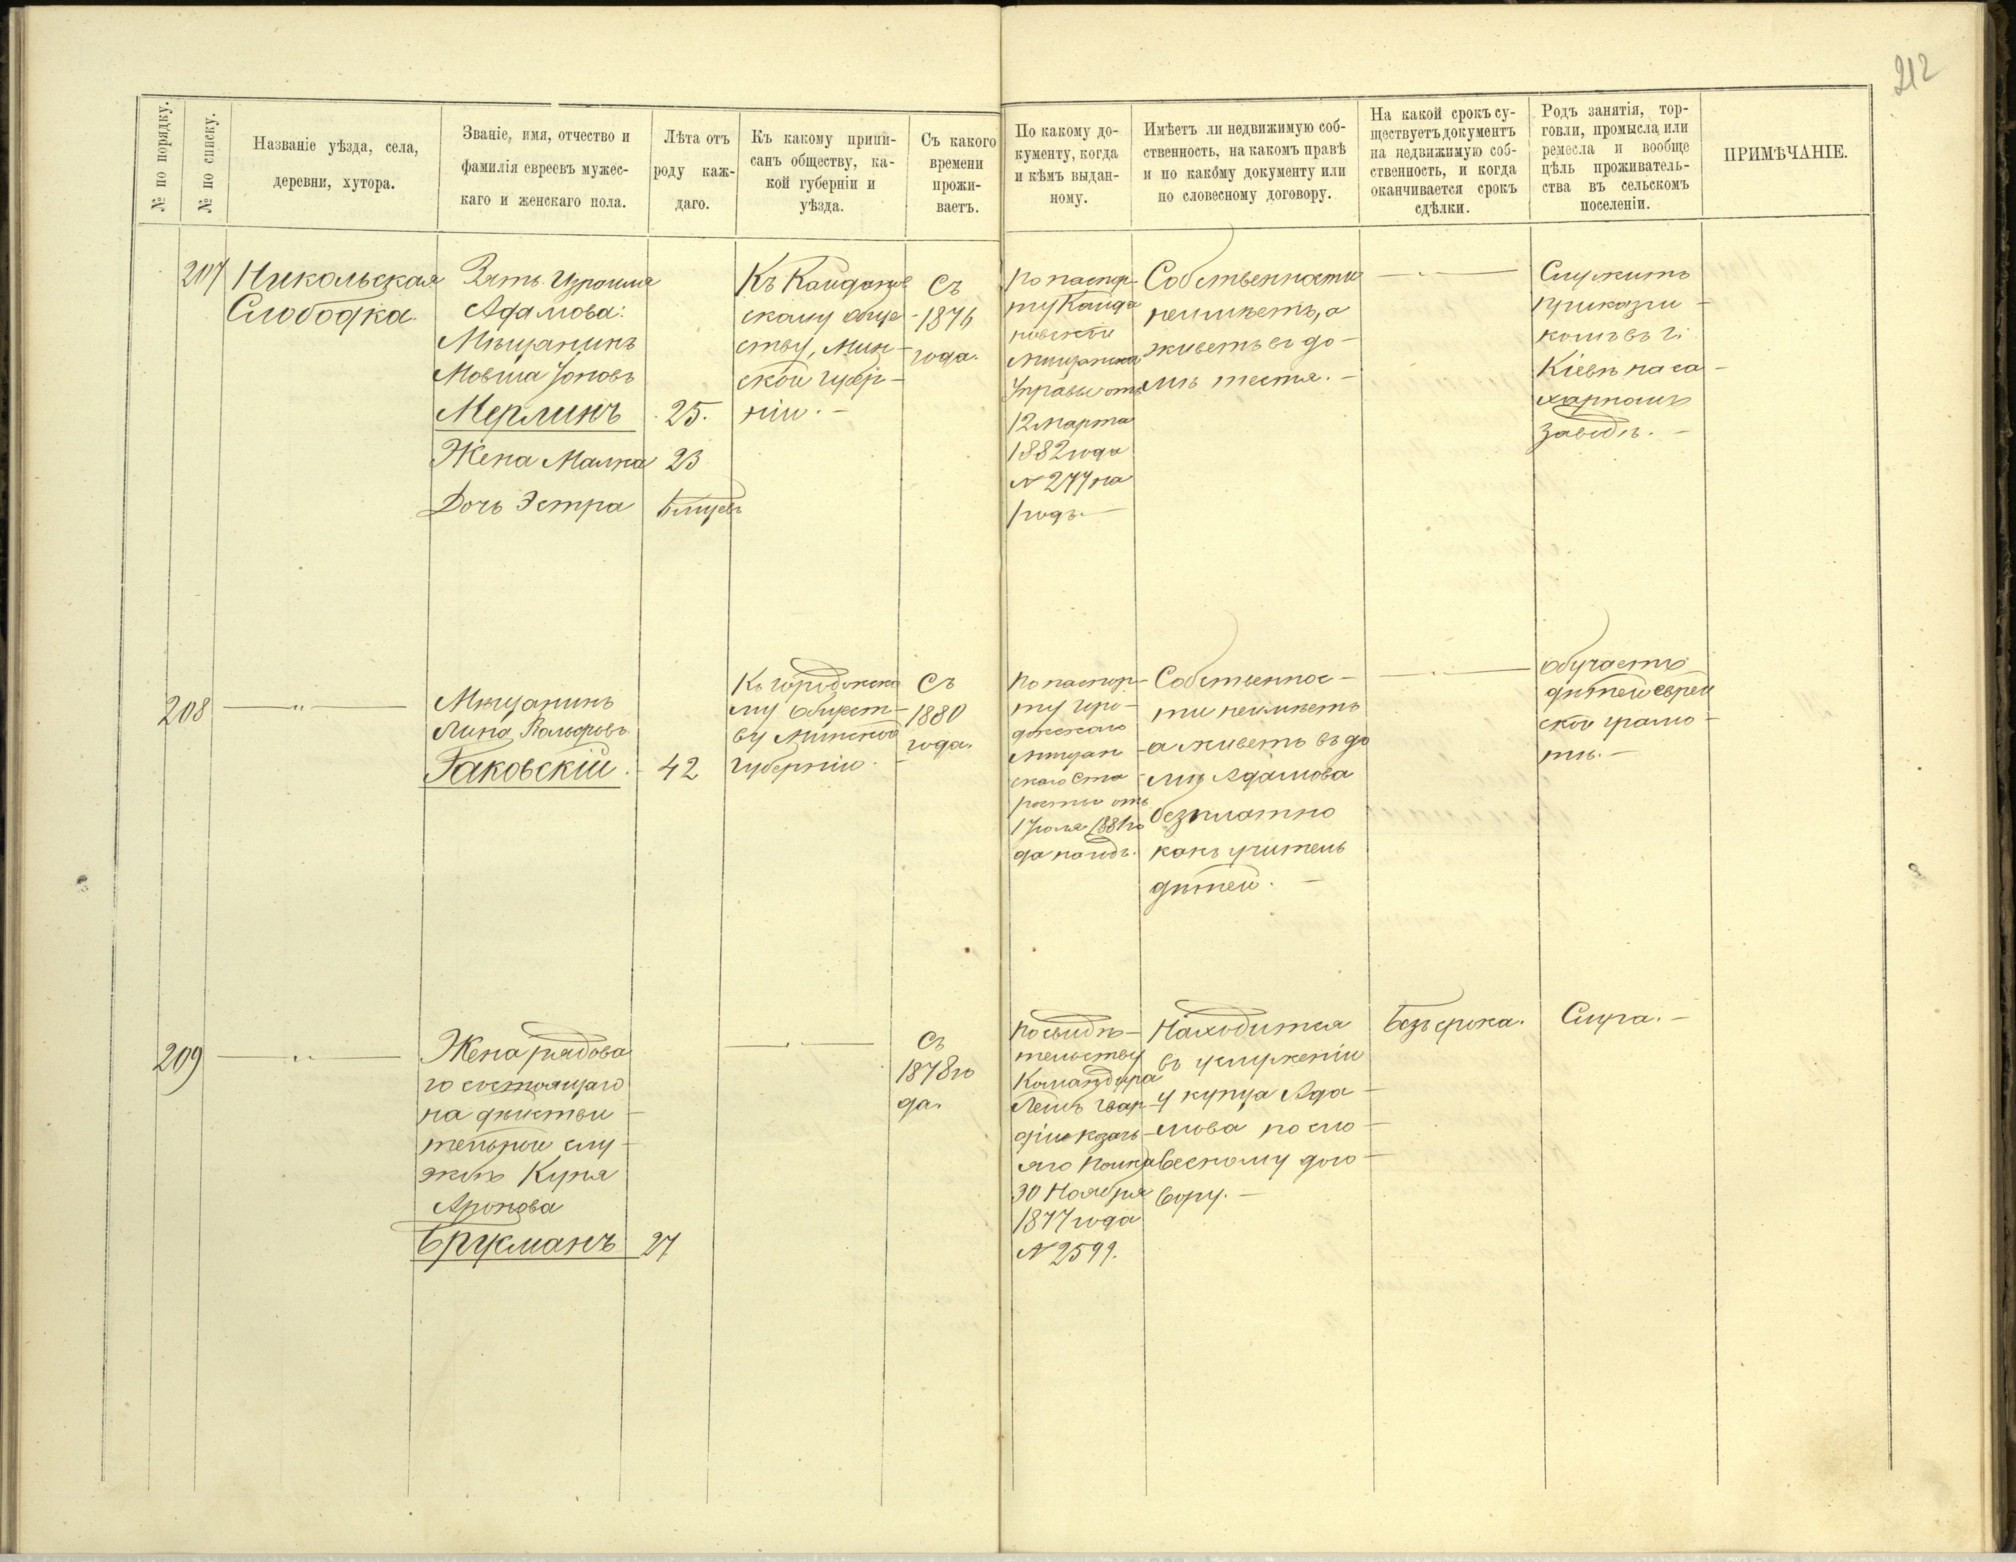 212
№ по порядку.
№ по списку.
Названіе уѣзда, села,
деревни, хутора.
Званіе, имя, отчество и
фамилія евреевъ мужес-
каго и женскаго пола.
Лѣта отъ
роду каж-
даго.
Къ какому припи-
санъ обществу, ка-
кой губерніи и
уѣзда.
Съ какого
времени
прожи-
ваетъ.
По какому до-
кументу, когда
и кѣмъ выдан-
ному.
Имѣетъ ли недвижимую соб-
ственность, на какомъ правѣ
и по какому документу или
по словесному договору.
На какой срокъ су-
ществуетъ документъ
на недвижимую соб-
ственность, и когда
оканчивается срокъ
сдѣлки.
Родъ занятія, тор-
говли, промысла, или
ремесла и вообще
цѣль проживатель-
ства въ сельскомъ
поселеніи.
ПРИМѢЧАНІЕ.
207
Никольская
Слободка.
Зять Израиля
Адамова:
Мѣщанинъ
Мовша Іоновъ
Мерлинъ
25.
Жена Малка
23
Дочь Эстра
6 мѣсяц.
Къ Кайданов
скому обще-
ству, Мин-
ской губер-
ніи. —
Съ
1876
года.
По паспор-
ту Кайда
новской
Мѣщанской
Управы отъ
12 Марта
1882 года
№ 277 на
1 годъ. —
Собственности
неимѣетъ, а
живетъ въ до-
мѣ тестя. —
— " —
Служитъ
прикащи-
комъ въ г.
Кіевѣ на са-
харномъ
заводѣ. —
208
— " —
Мѣщанинъ
Липа Вольфовъ
Гаковскій.
42
Къ городокско
му общест-
ву Минской
губерніи.
Съ
1880
года.
По паспор-
ту горо-
докскаго
мѣщан-
скаго ста
росты отъ
1 Іюля 1881 го
да на годъ.
Собственнос-
ти неимѣетъ
а живетъ въ до
мѣ Адамова
безплатно
какъ учитель
дѣтей. —
— " —
Обучаетъ
дѣтей еврей
ской грамо-
тѣ. —
209
— " —
Жена рядова
го состоящаго
на дѣйстви-
тельной слу-
жбѣ Куня
Аронова
Брукманъ
27
— " —
Съ
1878 го
да.
По свидѣ-
тельству
Командира
Лейбъ Гвар-
діи Казачь-
яго полка
30 Ноября
1877 года
№ 2599.
Находится
въ услуженіи
у купца Ада-
мова по сло-
весному дого-
вору. —
Безъ срока.
Слуга. —